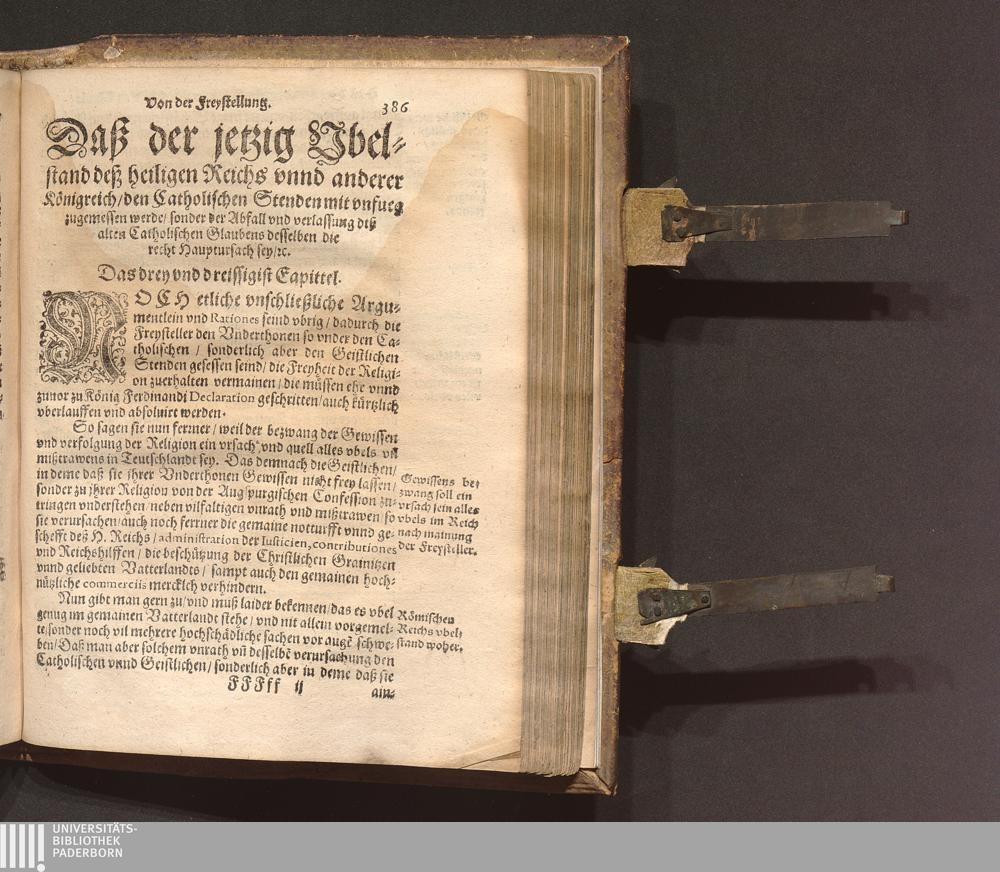 Von der Freystellung.
386
Daß der jetzig Vbel-
stand deß heiligen Reichs vnnd anderer
Königreich/den Catholischen Stenden mit vnfueg
zugemessen werde/ sonder der Abfall vnd verlassung diß
alten Catholischen Glaubens desselben die
recht Hauptursach sey/ꝛc.
Das drey vnd dreissigist Capittel.
NOCH etliche vnschließliche Argu-
mentlein vnd Rationes seind vbrig/ dadurch die
Freysteller den Vnderthonen so vnder den Ca-
tholischen / sonderlich aber den Geistlichen
Stenden gesessen seind/ die Freyheit der Religi-
on zuerhalten vermainen/ die müssen ehe vnnd
zuuor zu König Ferdinandi Declaration geschritten/auch kürtzlich
vberlauffen vnd absoluirt werden.
So sagen sie nun ferrner/ weil der bezwang der Gewissen
vnd verfolgung der Religion ein vrsach vnd quell alles vbels vñ
mißtrawens in Teutschlandt sey. Das demnach die Geistlichen/
in deme daß sie jhrer Vnderthonen Gewissen nicht frey lassen/
sonder zu jhrer Religion von der Augspurgischen Confession zu-
tringen vnderstehen/neben vilfaltigen vnrath vnd mißtrawen/so
sie verursachen/auch noch ferrner die gemaine notturfft vnnd ge-
schefft deß H. Reichs / administration der Iusticien, contributiones
vnd Reichshilffen / die beschützung der Christlichen Grainitzen
vnnd geliebten Vatterlandts / sampt auch den gemainen hoch-
nützliche commerciis mercklich verhindern.
Gewissens be-
zwang soll ein
vrsach sein alles
vbels im Reich
nach mainung
der Freysteller.
Nun gibt man gern zu/vnd muß laider bekennen/das es vbel
genug im gemainen Vatterlandt stehe/ vnd nit allein vorgemel-
te/sonder noch vil mehrere hochschädliche sachen vor augē schwe-
ben/Daß man aber solchem vnrath vñ desselbē verursachung den
Catholischen vnnd Geistlichen/ sonderlich aber in deme daß sie
Römischen
Reichs vbel-
stand woher.
FFFff ij
ain-
UNIVERSITÄTS-
BIBLIOTHEK
PADERBORN